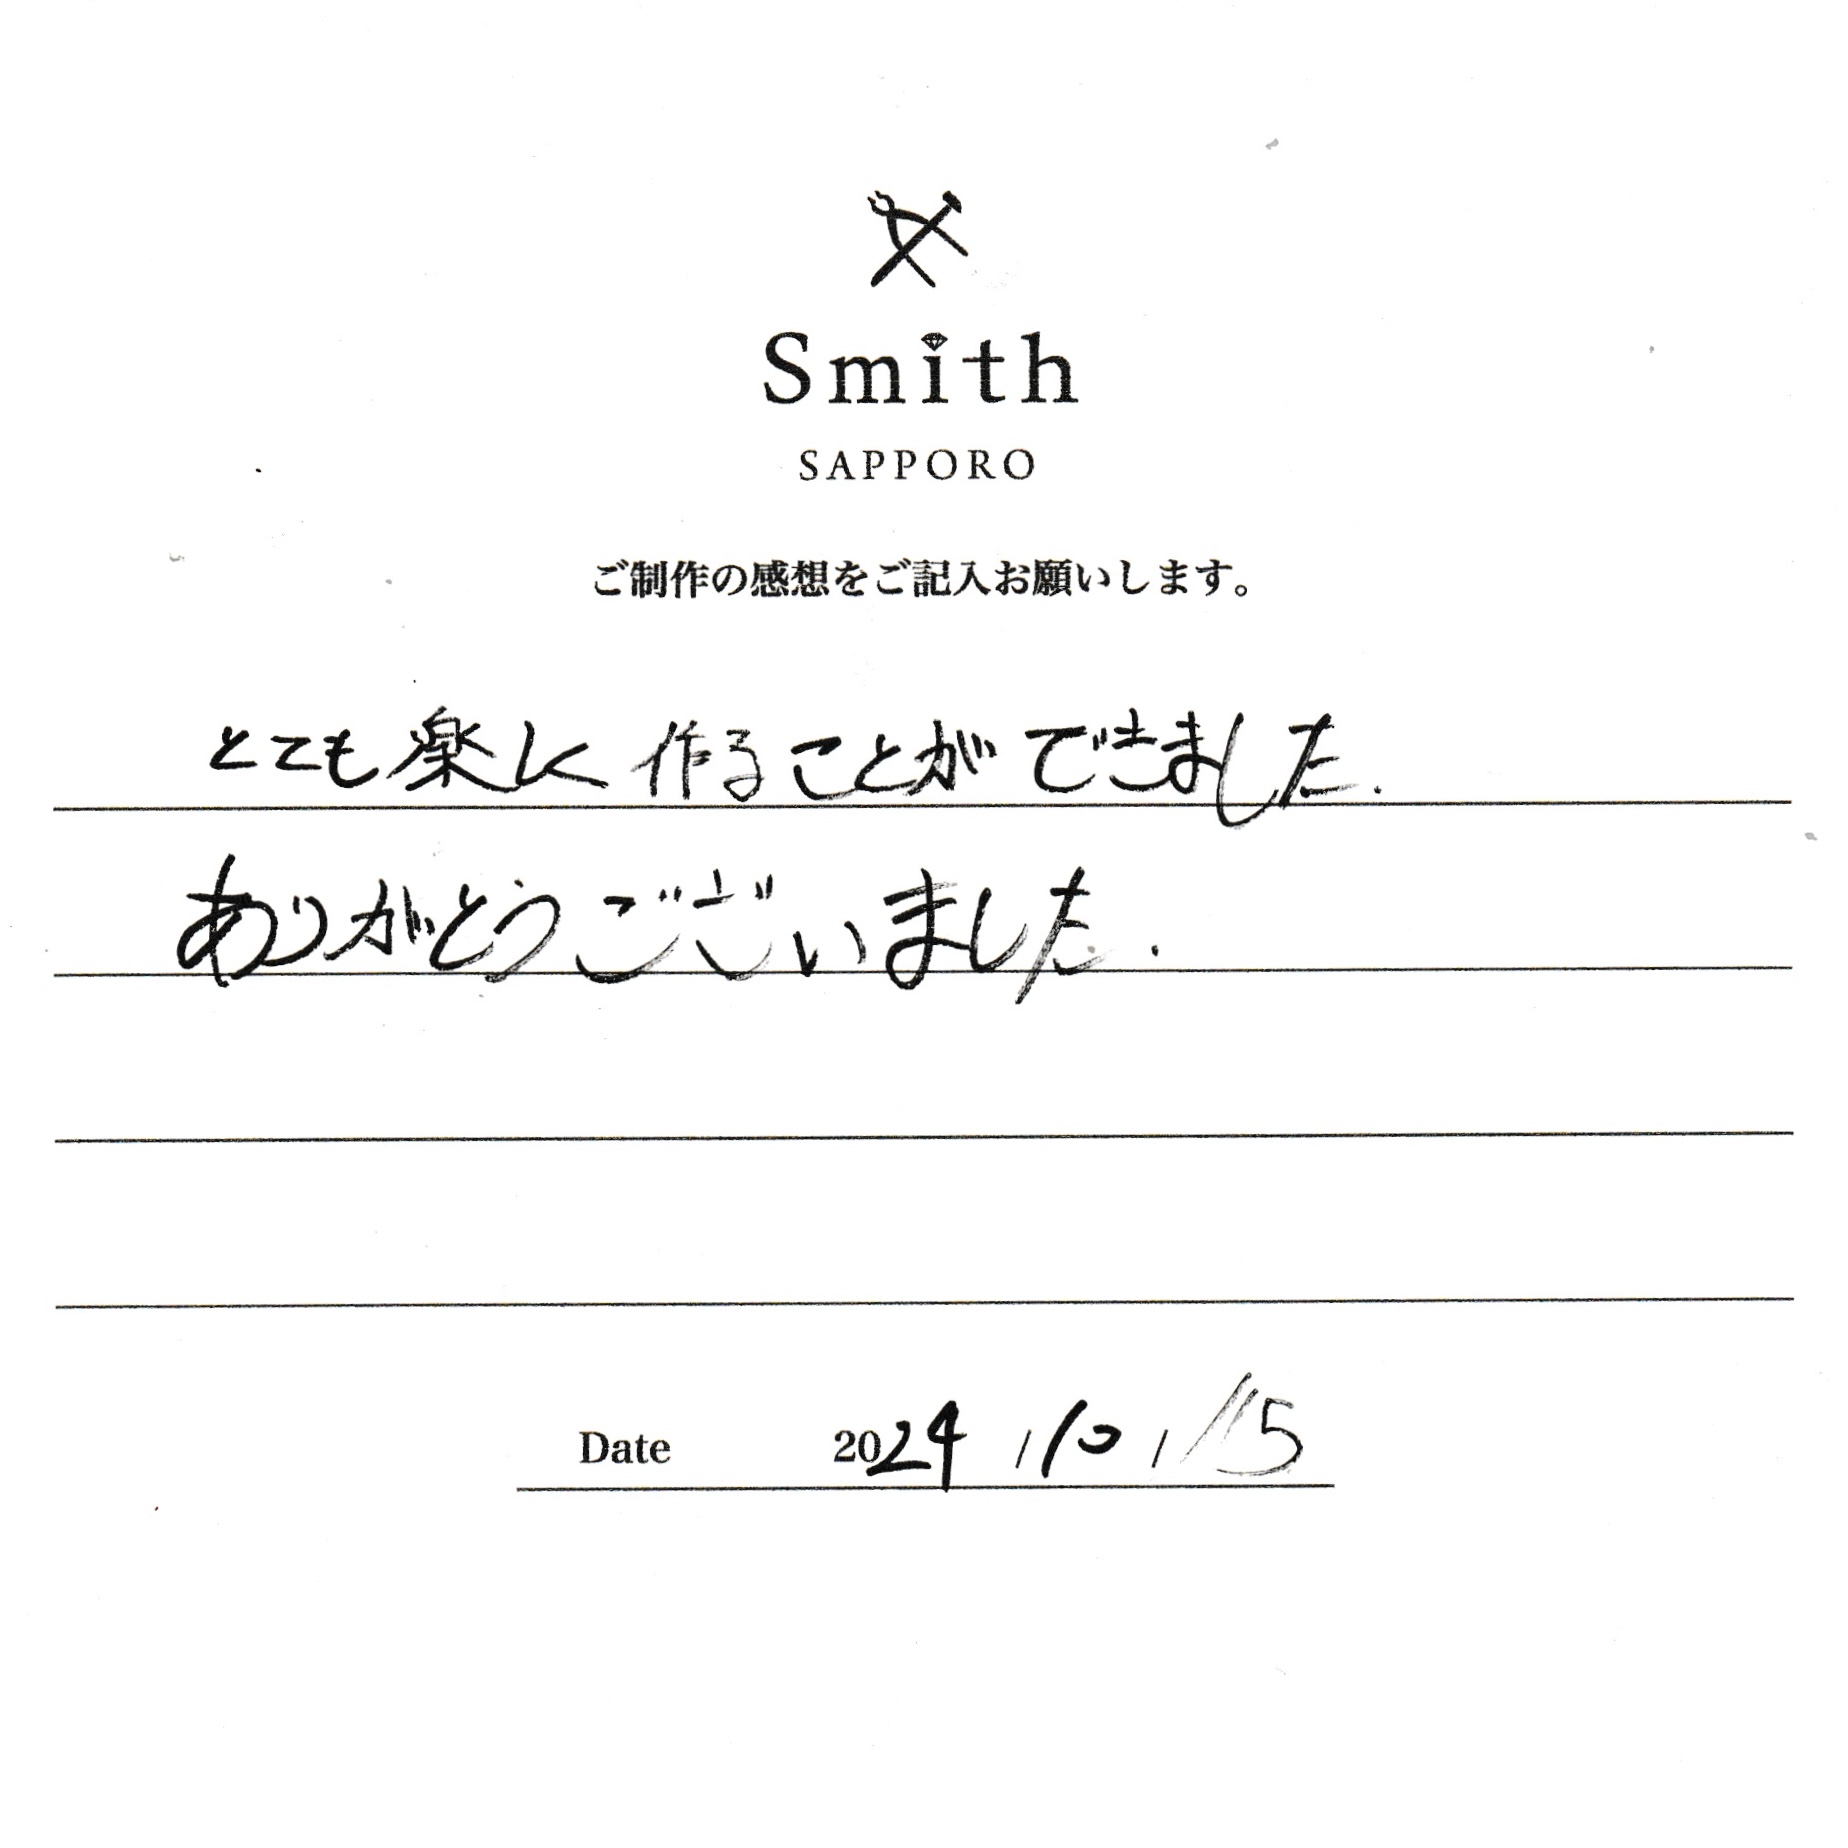 Smith
SAPPORO
ご制作の感想をご記入お願いします。
とても楽しく作ることができました.
ありがとうございました.
Date 2024/10/15